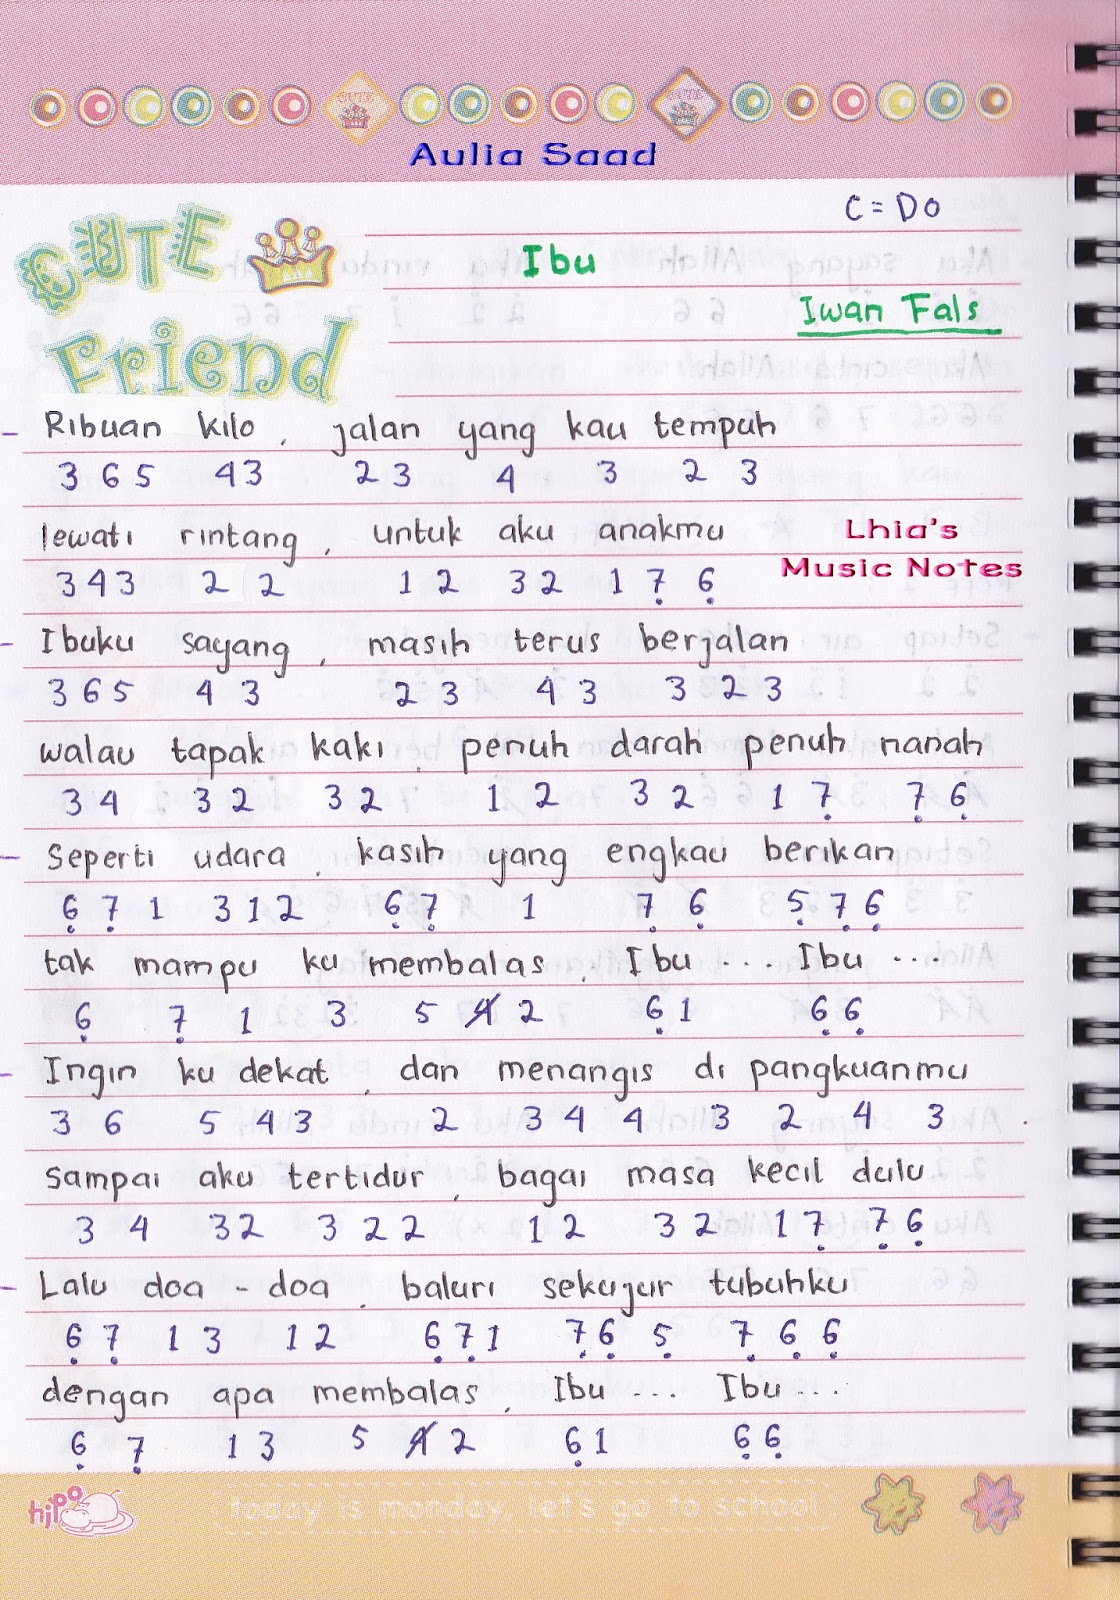 Aulia Saad
C = Do
CUTE Friend
Ibu
Iwan Fals
- Ribuan kilo , jalan yang kau tempuh
3 6 5 4 3 2 3 4 3 2 3
lewati rintang , untuk aku anakmu
Lhia's
Music Notes
3 4 3 2 2 1 2 3 2 1 7̣ 6̣
- Ibuku sayang , masih terus berjalan
3 6 5 4 3 2 3 4 3 3 2 3
walau tapak kaki , penuh darah penuh nanah
3 4 3 2 3 2 1 2 3 2 1 7̣ 7̣ 6̣
- Seperti udara , kasih yang engkau berikan
6̣ 7̣ 1 3 1 2 6̣ 7̣ 1 7̣ 6̣ 5̣ 7̣ 6̣
tak mampu ku membalas , Ibu ... Ibu ...
6̣ 7̣ 1 3 5 4̸ 2 6̣ 1 6̣ 6̣
- Ingin ku dekat , dan menangis di pangkuanmu
3 6 5 4 3 2 3 4 4 3 2 4 3 .
Sampai aku tertidur , bagai masa kecil dulu
3 4 3 2 3 2 2 1 2 3 2 1 7̣ 7̣ 6̣
- Lalu doa - doa , baluri sekujur tubuhku
6̣ 7̣ 1 3 1 2 6̣ 7̣ 1 7̣ 6̣ 5̣ 7̣ 6̣ 6̣
dengan apa membalas , Ibu ... Ibu ...
6̣ 7̣ 1 3 5 4̸ 2 6̣ 1 6̣ 6̣
hipo
today is monday, let's go to school